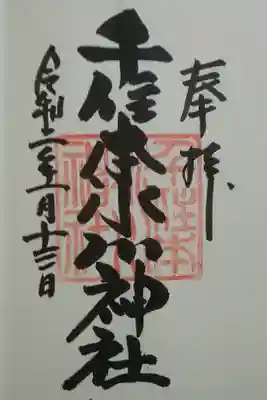 奉拝
千住本氷川神社
令和二年一月十三日